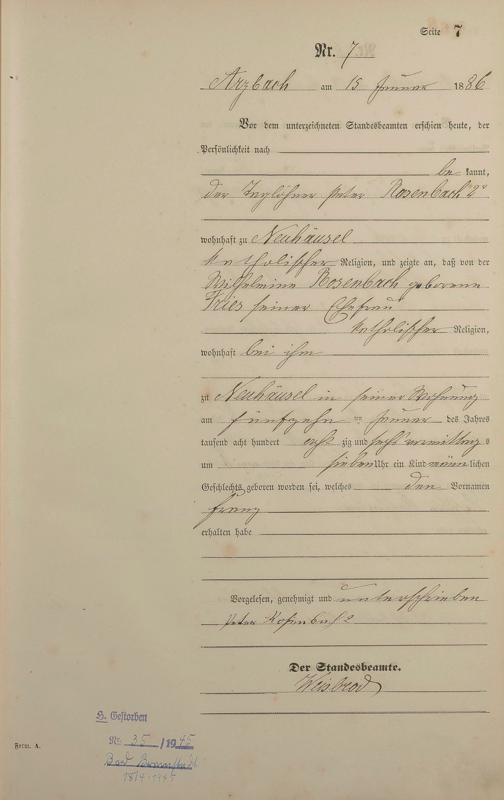 Seite 7
Nr. 7
Arzbach am 15 Januar 1886
Vor dem unterzeichneten Standesbeamten erschien heute, der
Persönlichkeit nach
be kannt,
der Taglöhner Peter Rosenbach "2"
wohnhaft zu Neuhäusel
katholischer Religion, und zeigte an, daß von der
Wilhelmine Rosenbach geborene
Fries seiner Ehefrau
katholischer Religion,
wohnhaft bei ihm
zu Neuhäusel in seiner Wohnung
am fünfzehn ten Januar des Jahres
tausend acht hundert acht zig und sechs vormittag s
um sieben Uhr ein Kind männ lichen
Geschlechts geboren worden sei, welches den Vornamen
Franz
erhalten habe
Vorgelesen, genehmigt und unterschrieben
Peter Rosenbach 2
Der Standesbeamte.
Weisbrod
H. Gestorben
Nr. 35 /1945
Bad
18/4·1945
Form. A.